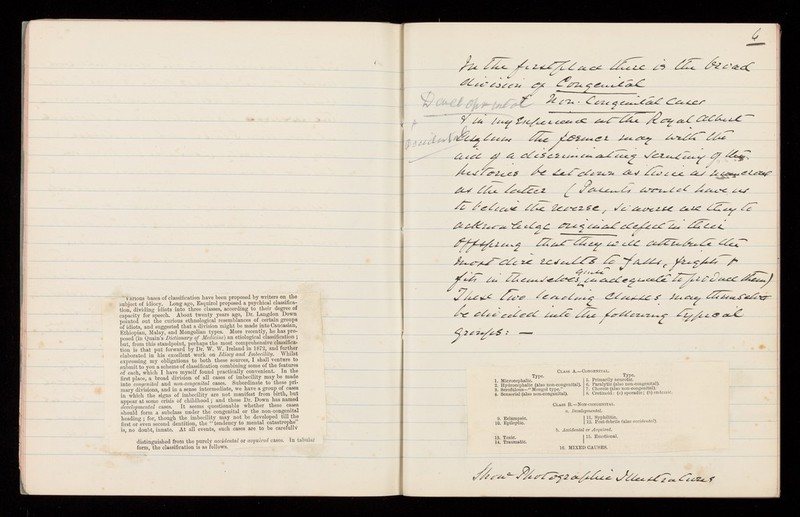 Various bases of classification have been proposed by writers on the
subject of idiocy. Long ago, Esquirol proposed a psychical classifica-
tion, dividing idiots into three classes, according to their degree of
capacity for speech. About twenty years ago, Dr. Langdon Down
pointed out the curious ethnological resemblances of certain groups
of idiots, and suggested that a division might be made into Caucasian,
Ethiopian, Malay, and Mongolian types. More recently, he has pro-
posed (in Quain's Dictionary of Medicine) an etiological classification;
but, from this standpoint, perhaps the most comprehensive classifica-
tion is that put forward by Dr. W. W. Ireland in 1872, and further
elaborated in his excellent work on Idiocy and Imbecility. Whilst
expressing my obligations to both these sources, I shall venture to
submit to you a scheme of classification combining some of the features
of each, which I have myself found practically convenient. In the
first place, a broad division of all cases of imbecility may be made
into congenital and non-congenital cases. Subordinate to these pri-
mary divisions, and in a sense intermediate, we have a group of cases
in which the signs of imbecility are not manifest from birth, but
appear at some crisis of childhood; and these Dr. Down has named
developmental cases. It seems questionable whether these cases
should form a subclass under the congenital or the non-congenital
heading; for, though the imbecility may not be developed till the
first or even second dentition, the "tendency to mental catastrophe"
is, no doubt, innate. At all events, such cases are to be carefully
distinguished from the purely accidental or acquired cases. In tabular
form, the classification is as follows.
6
In the first place there is the broad
division of Congenital
Developmental & Non-Congenital Cases
& in my Experience at the Royal Albert
Asylum the former may with the
aid of a discriminating scrutiny of their
histories be set down as twice as numerous
as the latter (Parents would have us
to believe the reverse, so averse are they to
acknowledge original defect in their
offspring that they will attribute the
most dire results to falls, frights &
quite
fits in themselves inadequate to produce them)
These two leading classes may themselves
be divided into the following typical
groups: —
CLASS A.—CONGENITAL.
Type. Type.
1. Microcephalic. 5. Primarily neurotic.
2. Hydrocephalic (also non-congenital). 6. Paralytic (also non-congenital).
3. Scrofulous—"Mongol type." 7. Choreic (also non-congenital).
4. Sensorial (also non-congenital). 8. Cretinoid: (a) sporadic; (b) endemic.
CLASS B.—NON-CONGENITAL.
a. Developmental.
9. Eclampsic. 11. Syphilitic.
10. Epileptic. 12. Post-febrile (also accidental).
b. Accidental or Acquired.
13. Toxic. 15. Emotional.
14. Traumatic.
16. MIXED CAUSES.
Show Photographic Illustrations